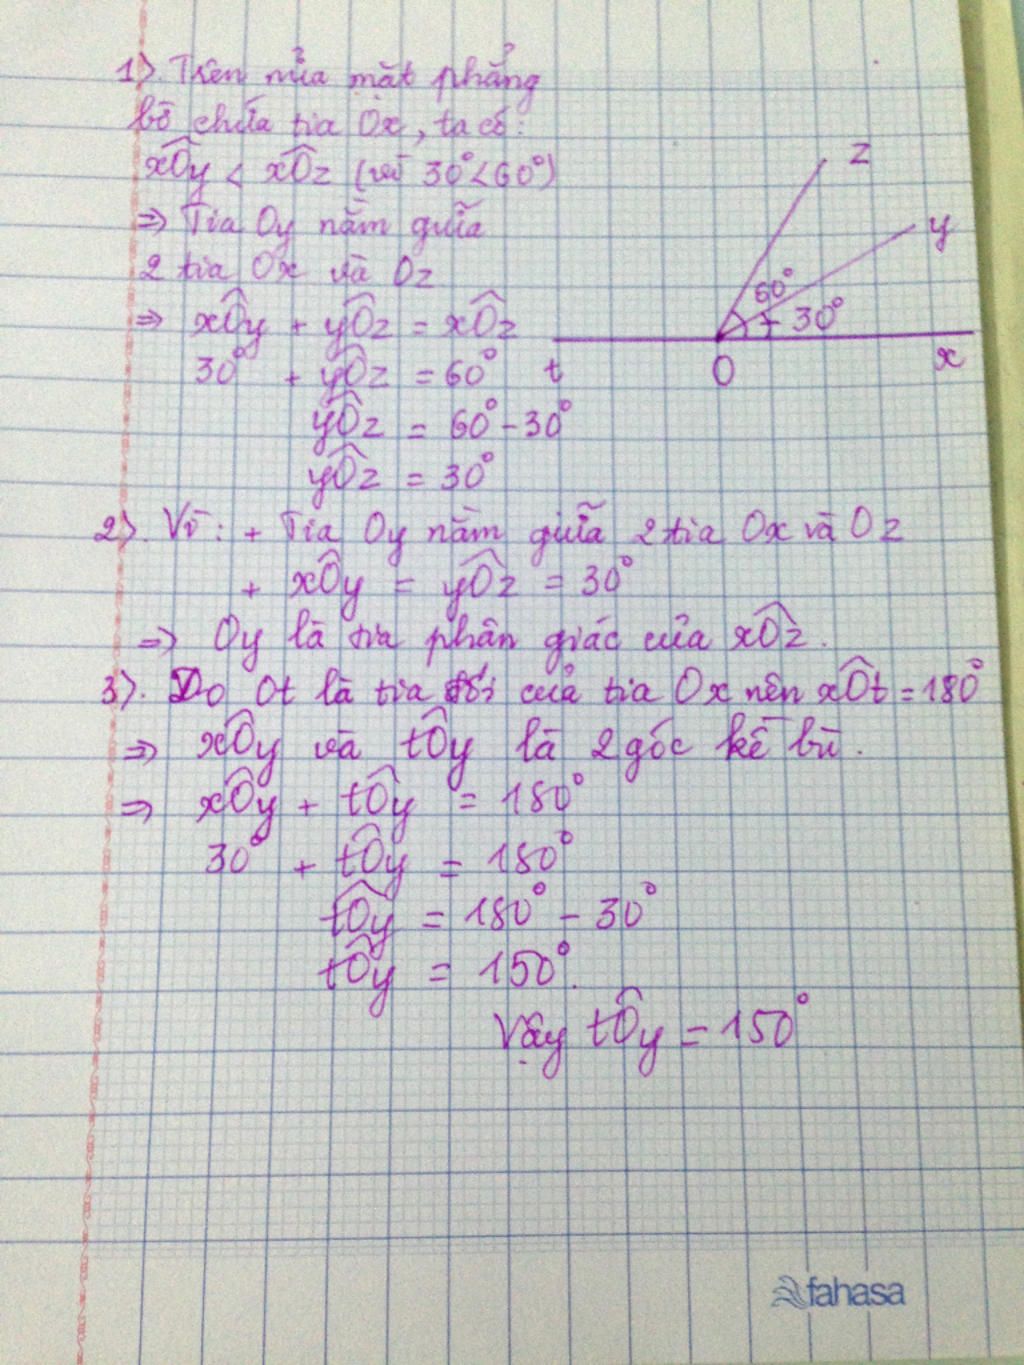 1). Trên nửa mặt phẳng
bờ chứa tia Ox, ta có:
xÔy < xÔz (vì 30° < 60°)
⇒ Tia Oy nằm giữa
2 tia Ox và Oz
⇒ xÔy + yÔz = xÔz
30° + yÔz = 60°
yÔz = 60° - 30°
yÔz = 30°
z
y
60°
30°
t
O
x
2). Vì: + Tia Oy nằm giữa 2 tia Ox và Oz
+ xÔy = yÔz = 30°
⇒ Oy là tia phân giác của xÔz.
3). Do Ot là tia đối của tia Ox nên xÔt = 180°
⇒ xÔy và tÔy là 2 góc kề bù.
⇒ xÔy + tÔy = 180°
30° + tÔy = 180°
tÔy = 180° - 30°
tÔy = 150°.
Vậy tÔy = 150°
fahasa